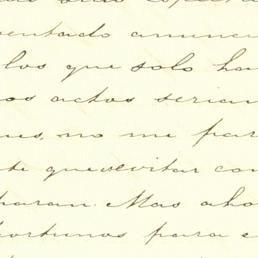 entado anunci
los que solo ha
os actos serian
ues, no me par
te que evitar con
paran. Mas aho
ortunos para e